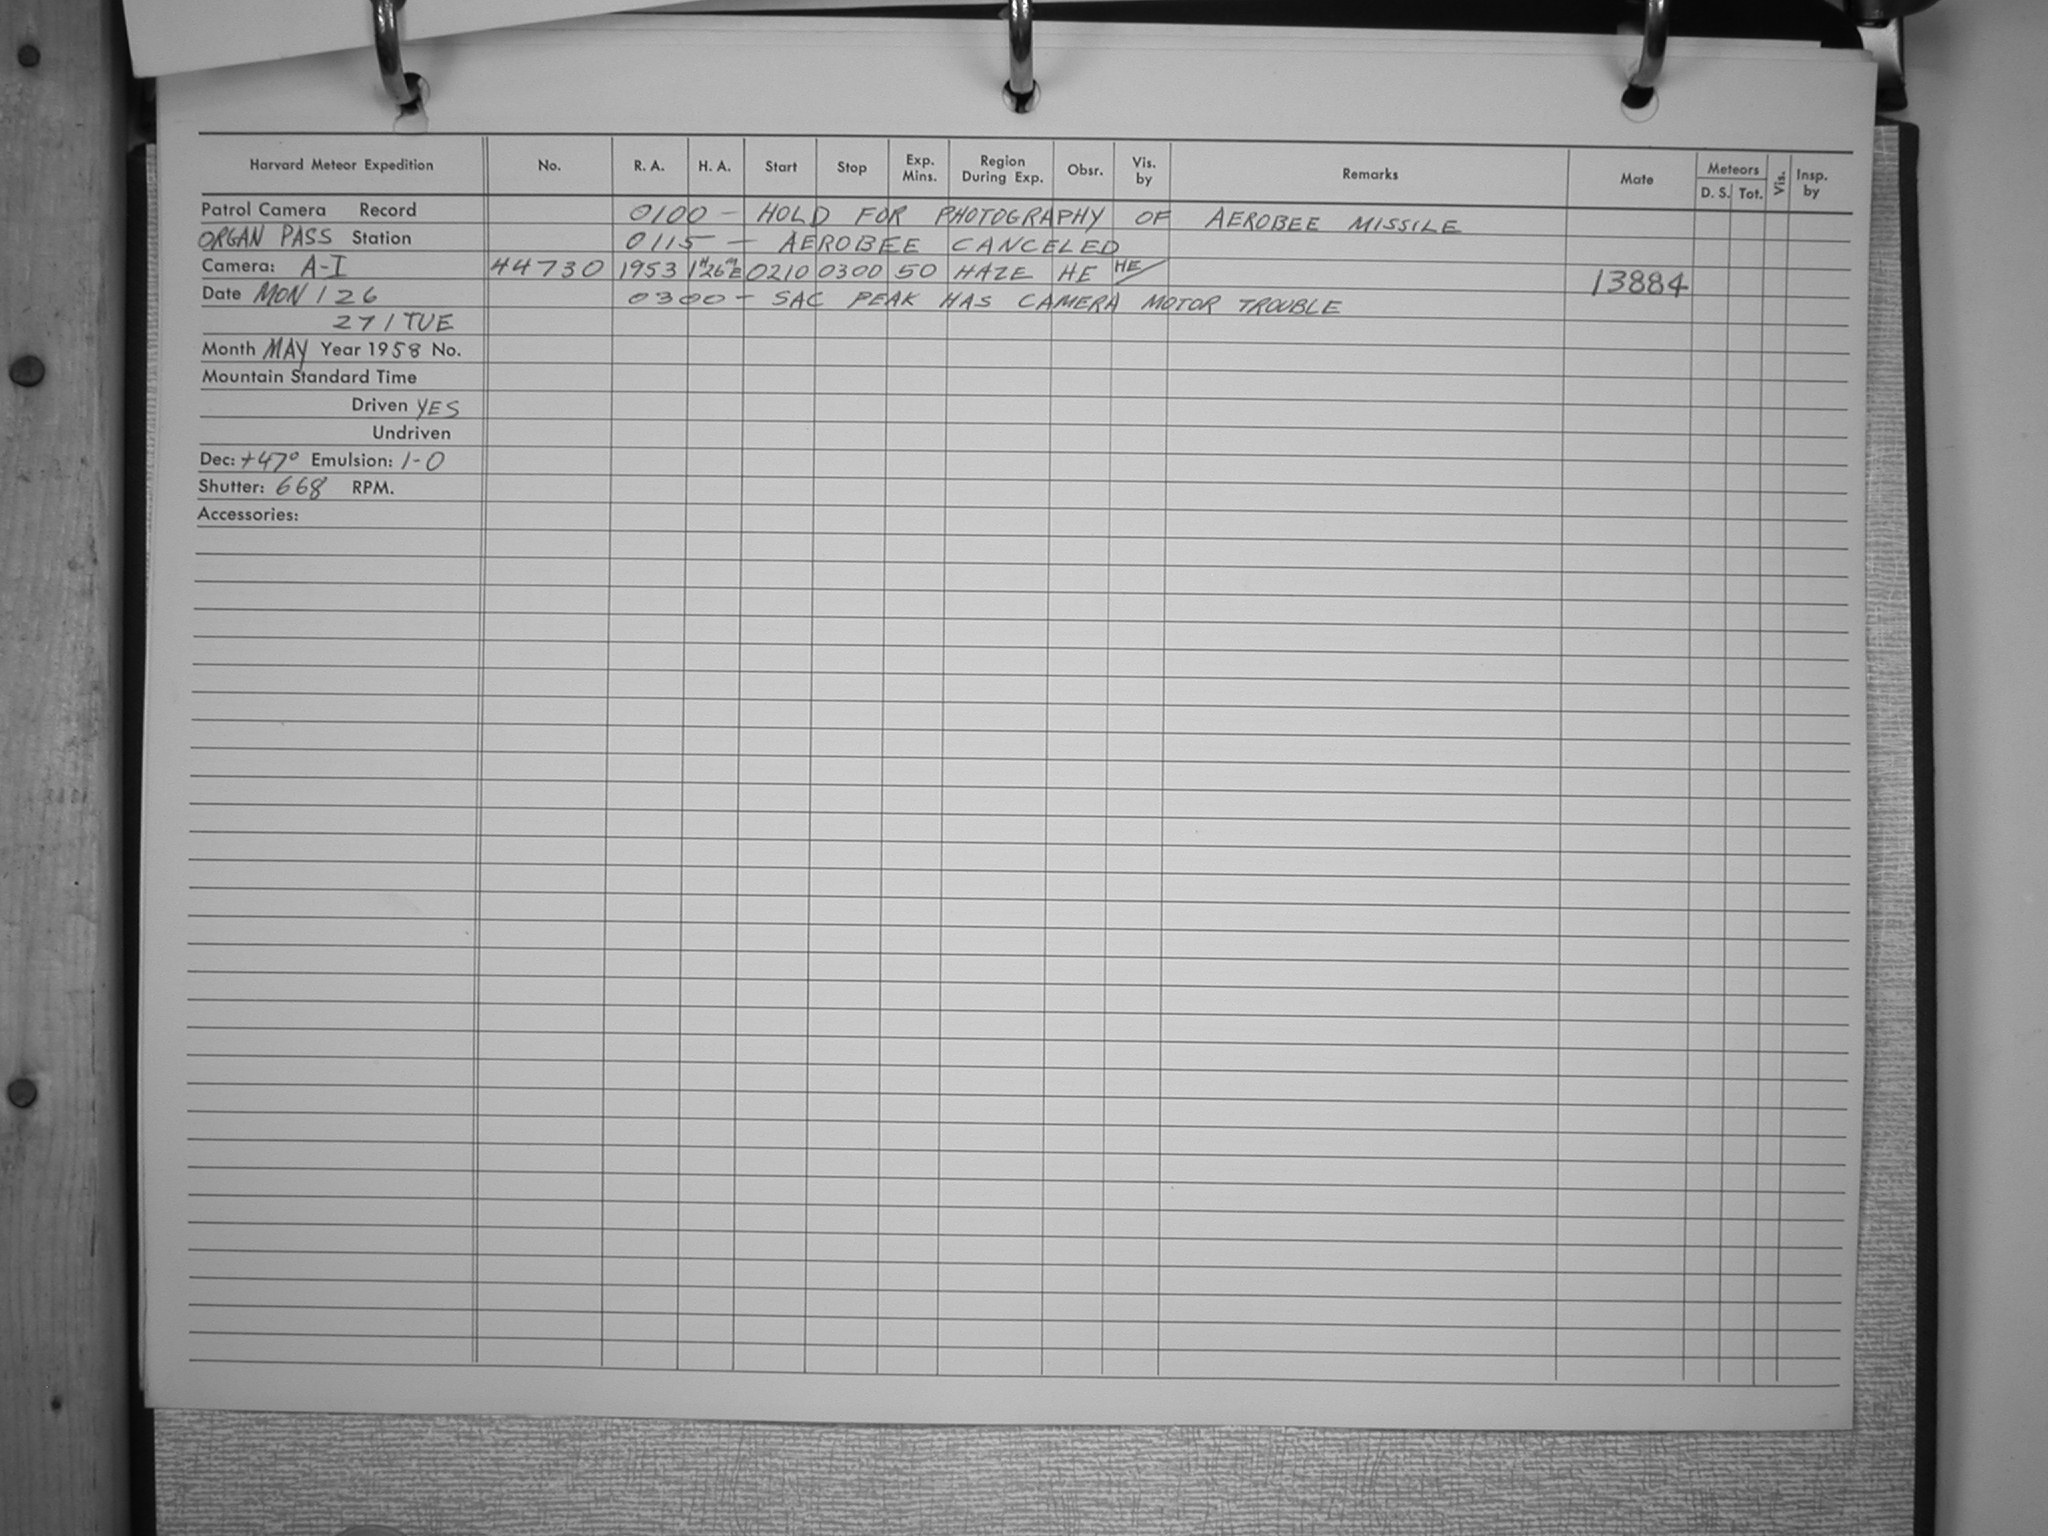 Harvard Meteor Expedition No. R. A. H. A. Start Stop Exp. Mins. Region During Exp. Obsr. Vis. by Remarks Mate Meteors D. S. Tot. Vis. Insp. by
Patrol Camera Record 0100 - HOLD FOR PHOTOGRAPHY OF AEROBEE MISSILE
ORGAN PASS Station 0115 - AEROBEE CANCELED
Camera: A-I 44730 1953 1H26mE 0210 0300 50 HAZE HE HE/ 13884
Date MON / 26 0300 - SAC PEAK HAS CAMERA MOTOR TROUBLE
27 / TUE
Month MAY Year 1958 No.
Mountain Standard Time
Driven YES
Undriven
Dec: +47° Emulsion: 1-0
Shutter: 668 RPM.
Accessories: